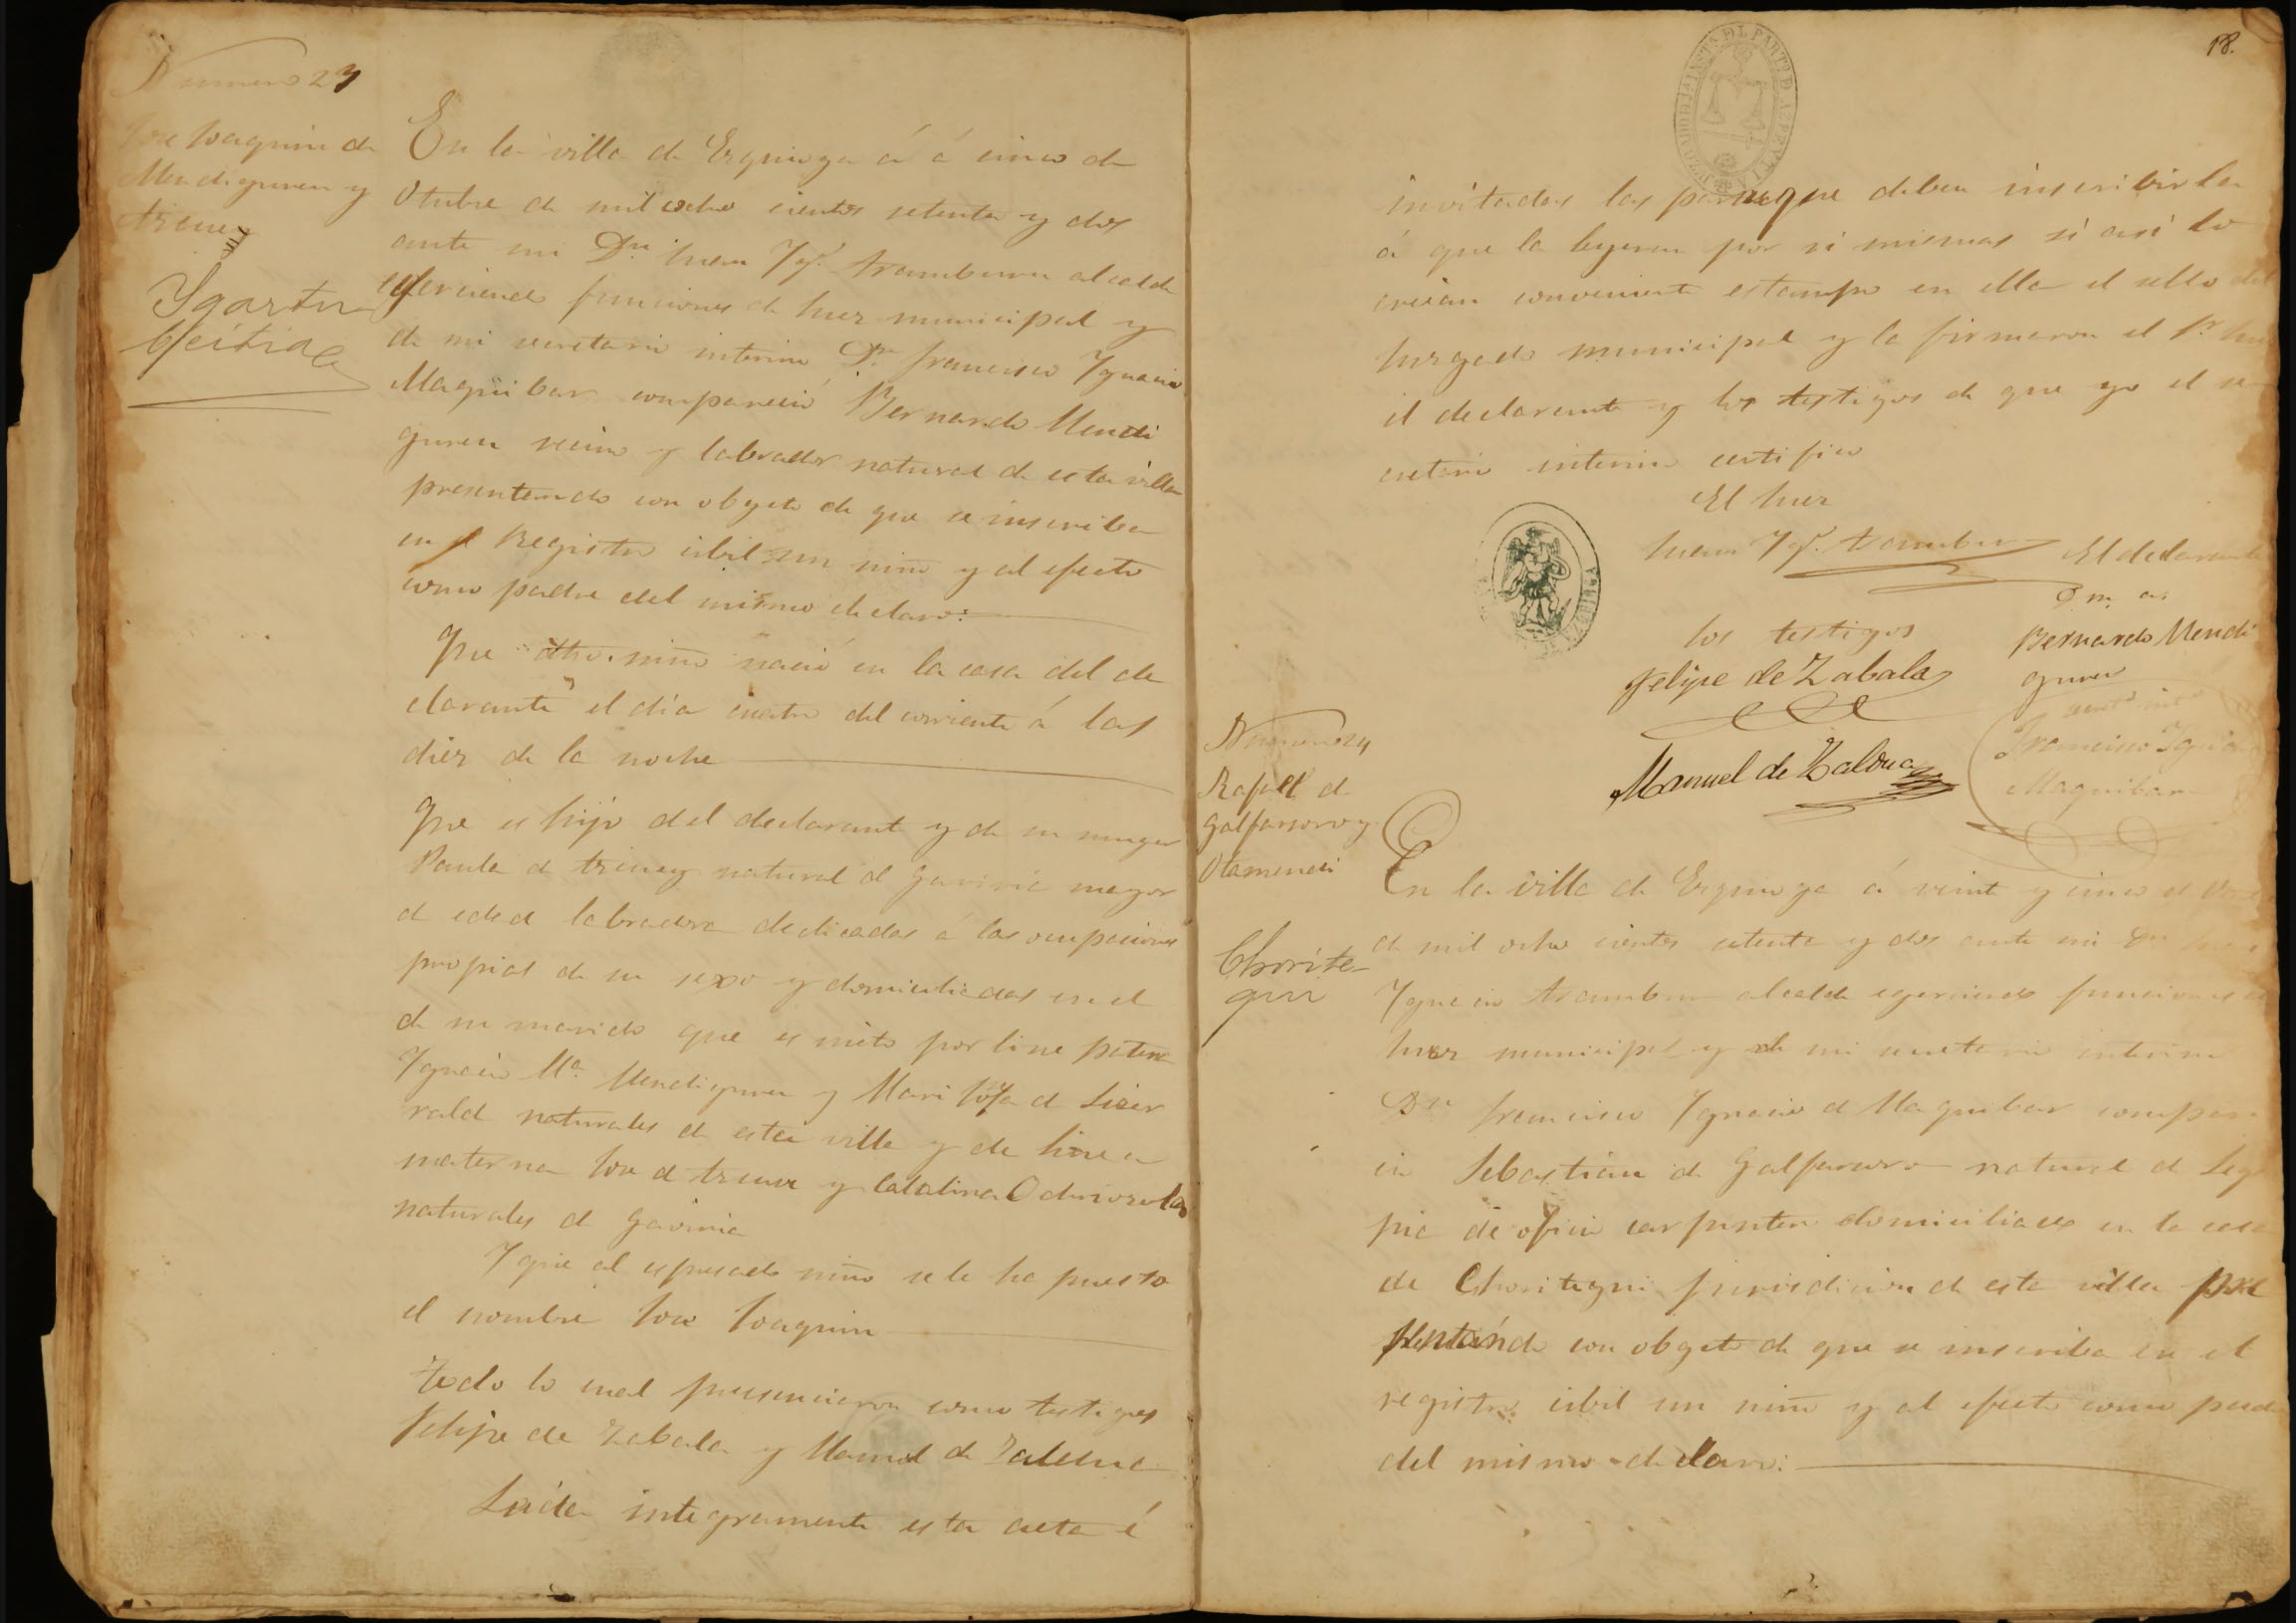 Numero 23
Jose Joaquin de
Mendiguren y
Ygartu
Beitia
En la villa de Ezquioga á á cinco de
Otubre de mil ocho cientos setenta y dos
ante mi Dn Juan Ygo. Aramburu alcalde
egerciendo funciones de Juez municipal y
de mi secretario interino Dn. Francisco Ygnacio
Maquibar compareció Bernardo Mendi
guren vecino y labrador natural de esta villa
presentando con obgeto de que se inscriba
en el Registro cibil un niño y al efecto
como padre del mismo declaro:
Que dho. niño nació en la casa del de
clarante el dia cuatro del corriente á las
diez de la noche
Que es hijo del declarante y de su muger
Paula de natural d Gaviria mayor
d edad labradora dedicadas á las ocupaciones
propias de su sexo y domiciliadas en el
de su marido que es nieto por line patern
Ygnacio Ma. Mendiguren y Mari Josefa d
naturales de esta villa y de linea
materna Jose d y Catalina Odriozola
naturales d Gaviria
Y que al espresado niño se le ha puesto
el nombre Jose Joaquin
todo lo cual presenciaron como testigos
Felipe de Zabala y Manuel de Zaldua
Leida integramente esta acta é
18.
JUZGADO D JA INSTA. DEL PARTO. D AZPEITIA
invitadas las personas que deben inscribirla
á que la leyeran por si mismas si asi lo
creian conveniente estampo en ella el sello del
Juzgado municipal y la firmaron el Sr. Juez
el declarante y los testigos de que yo el se
cretario interino certifico
El Juez
Juan Ygo. Aramburu
El declarante
los testigos
Bernardo Mendi
guren
Felipe de Zabala
Manuel de Zaldua
Francisco Ygnacio
Maquibar
Numero 24
Rafael d
Galfarsoro y
Otamendi
Chorite
gui
En la villa de Ezquioga á veinte y cinco d
de mil ocho cientos setenta y dos ante mi Dn Juan
Ygnacio Aramburu alcalde egerciendo funciones de
Juez municipal y de mi secretario interino
Dn Francisco Ygnacio d Maquibar compare
ció Sebastián de Galfarsoro natural d Leg
pia de oficio carpintero domiciliado en la casa
de Choritegui jurisdicion d esta villa pre
sentándo con obgeto de que se inscriba en el
registro cibil un niño y al efecto como padre
del mismo declaro: